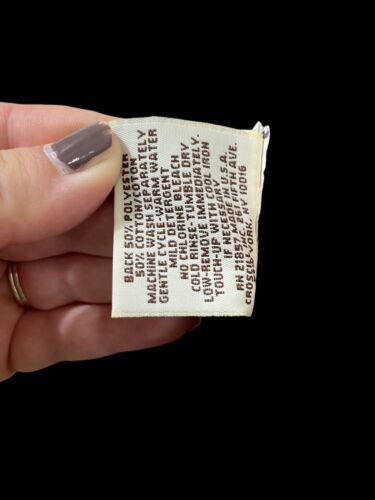 BACK 50% POLYESTER
50% COTTON
MACHINE WASH SEPARATELY
GENTLE CYCLE-WARM WATER
MILD DETERGENT
NO CHLORINE BLEACH
COLD RINSE-TUMBLE DRY
LOW-REMOVE IMMEDIATELY.
TOUCH-UP WITH COOL IRON
IF NECESSARY
MADE U.S.A.
RN FIFTH AVE.
CROSCILL YORK, NY 10016